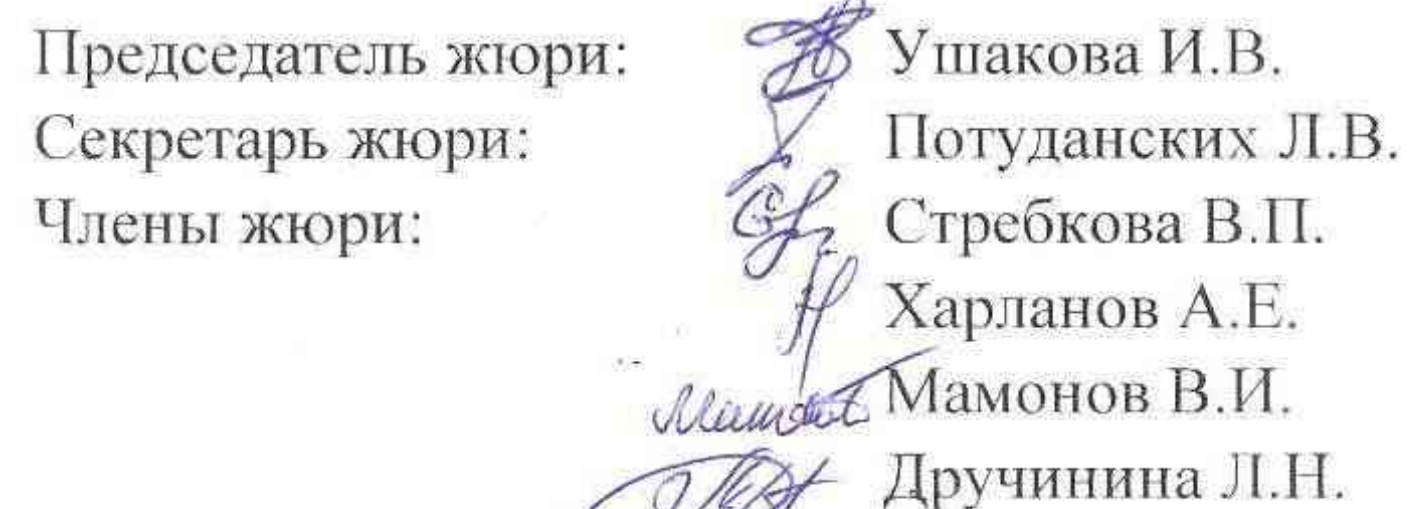 Председатель жюри: Ушакова И.В.
Секретарь жюри: Потуданских Л.В.
Члены жюри: Стребкова В.П.
Харланов А.Е.
Мамонов В.И.
Дручинина Л.Н.